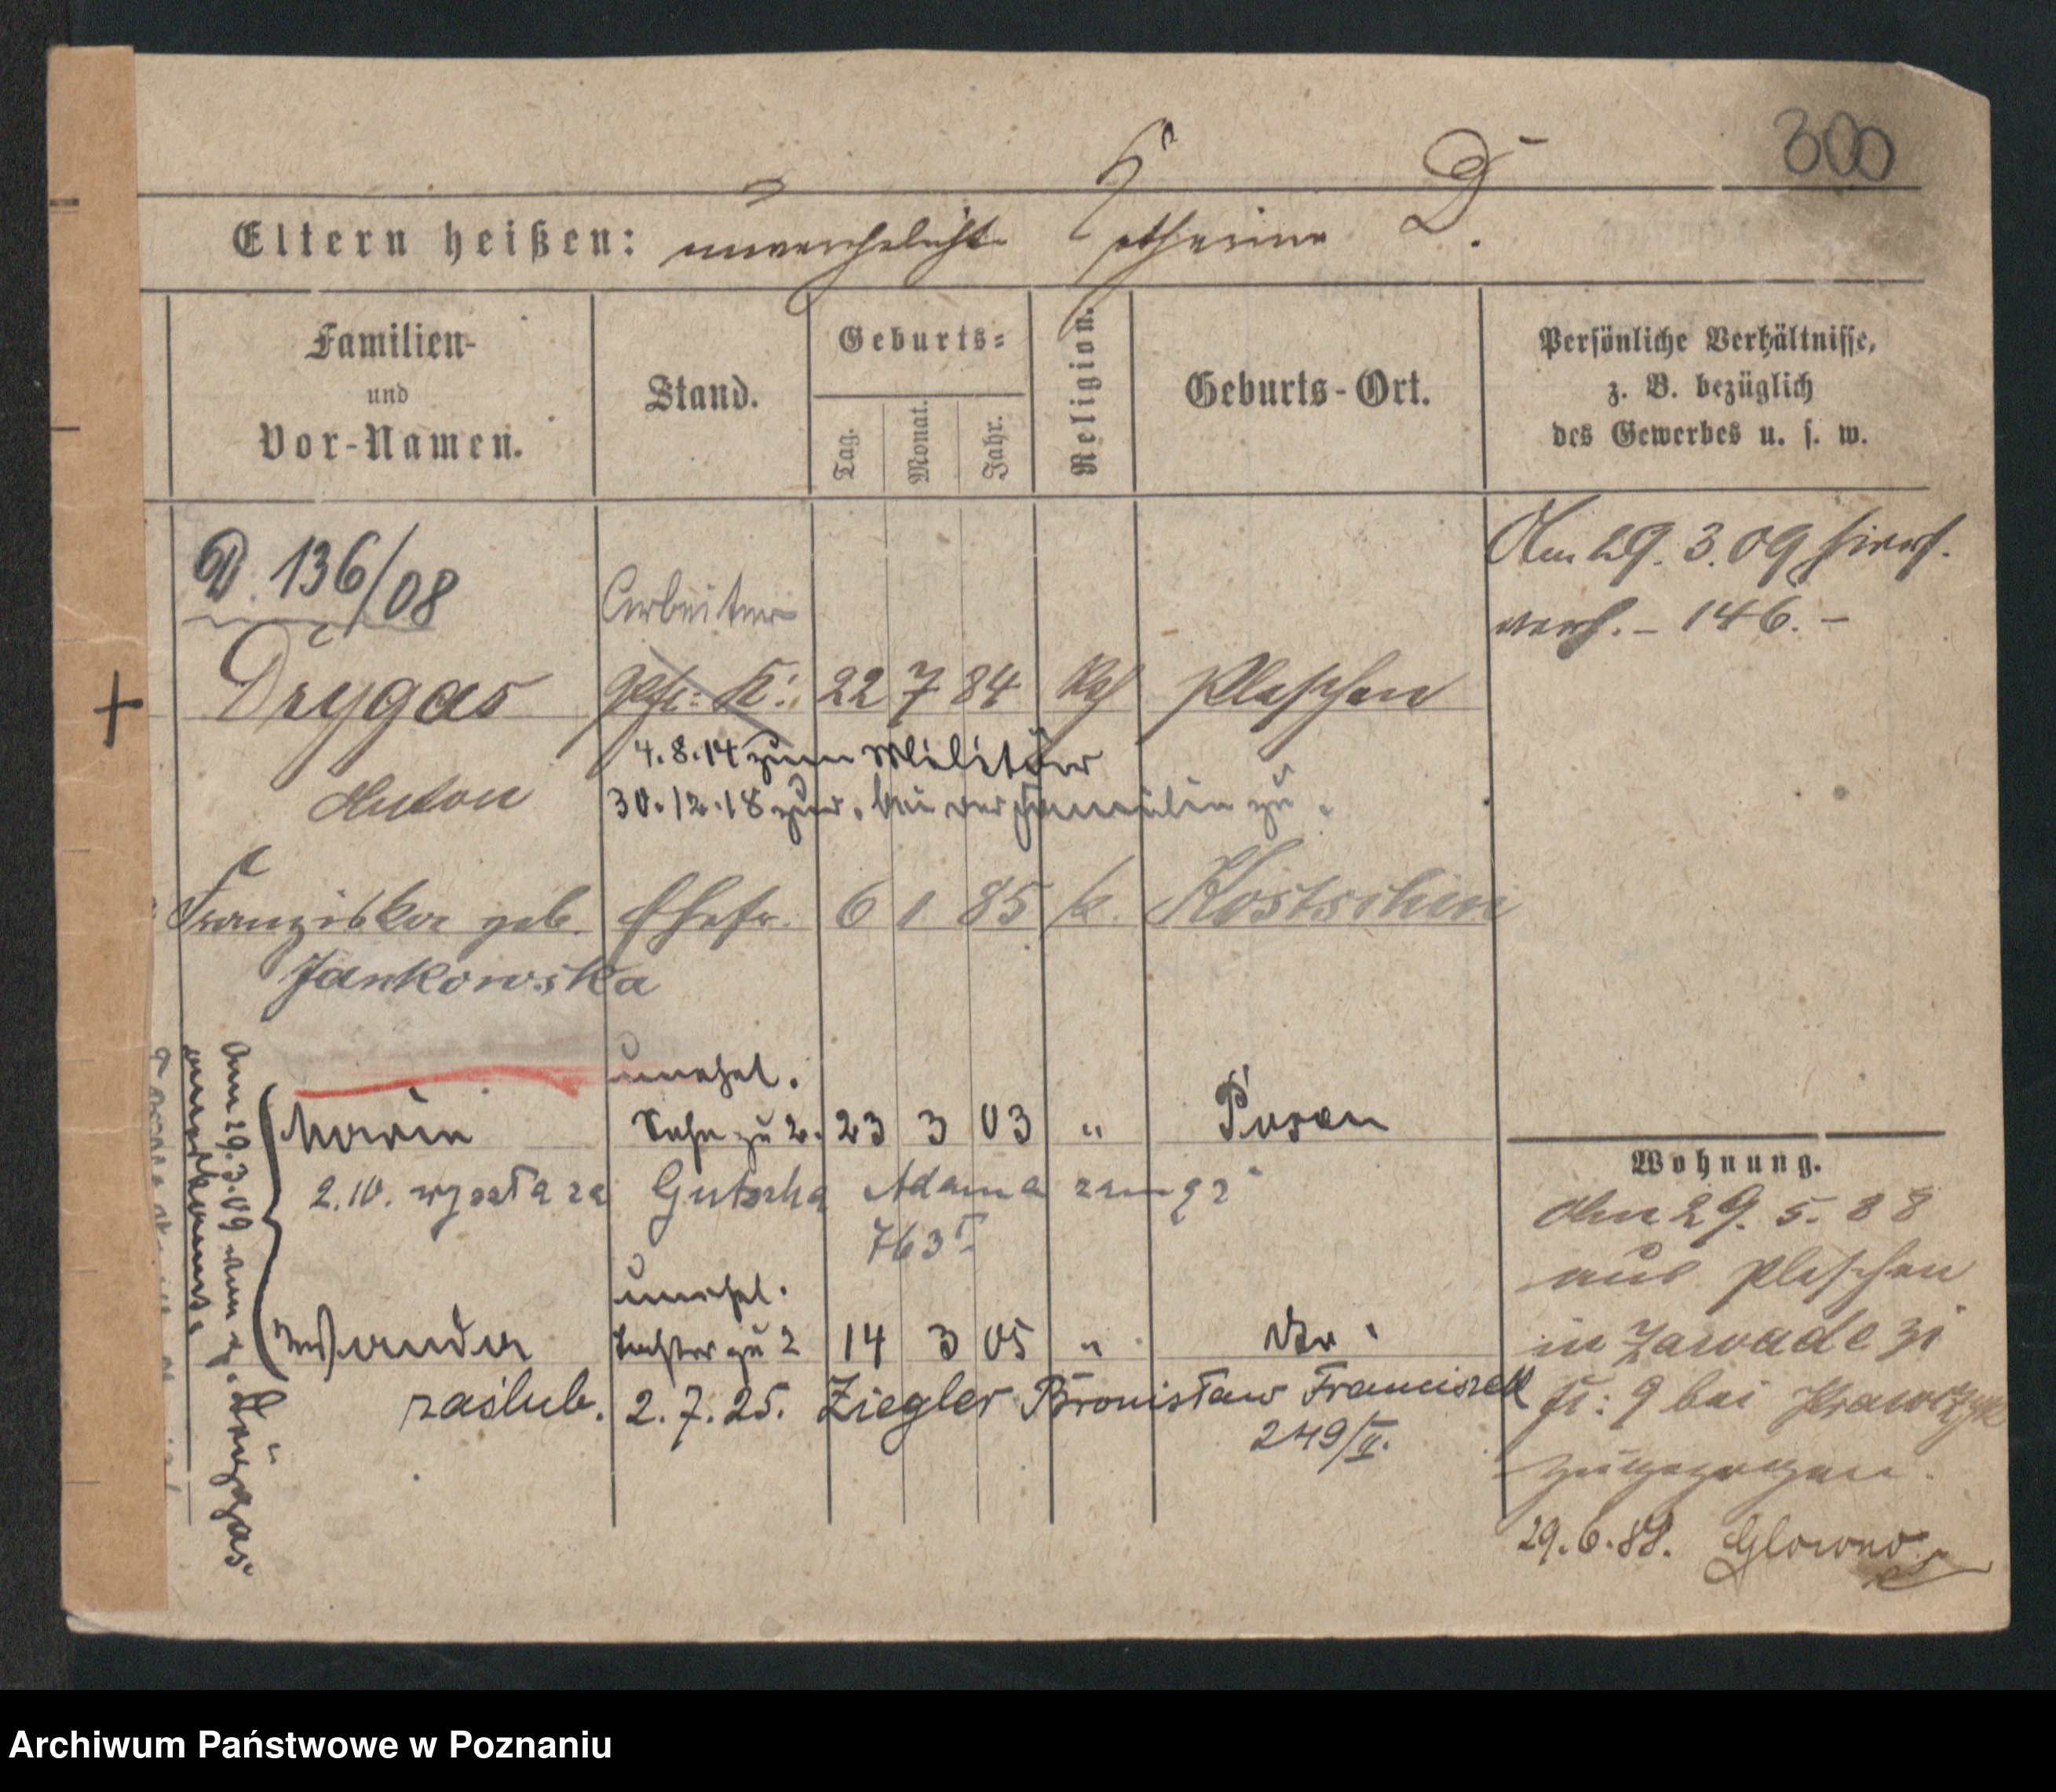 300
Eltern heißen: unverehelicht Catharina D.
Familien-
und
Vor-Namen.
Stand.
Geburts-
Tag.
Monat.
Jahr.
Religion.
Geburts-Ort.
Persönliche Verhältnisse,
z. B. bezüglich
des Gewerbes u. s. w.
D. 136/08
Am 29. 3. 09 hierh.
verh. - 146. -
Arbeiter
Drygas 22 7 84 Kth Pleschen
4.8.14 zum Militär
Anton
30.12.18 zur. bei der Familie zu.
Franziska geb. Ehefr. 6 1 85 k. Kostschin
Jankowska
unehel.
Maria zu 2. 23 3 03 " Posen
2.10. wyszła za Adama zamąż
763
unehel.
Wanda Tochter zu 2 14 3 05 " Do
zaślub. 2.7.25. Ziegler Bronisław Franciszek
249/II.
Am 29.3.09 von
anerkannt.
Drygas.
Wohnung.
Am 29. 5. 88
aus Pleschen
in Zawade
No: 9 bei Krawczyk
zugezogen.
29.6.88. Glowno
Archiwum Państwowe w Poznaniu